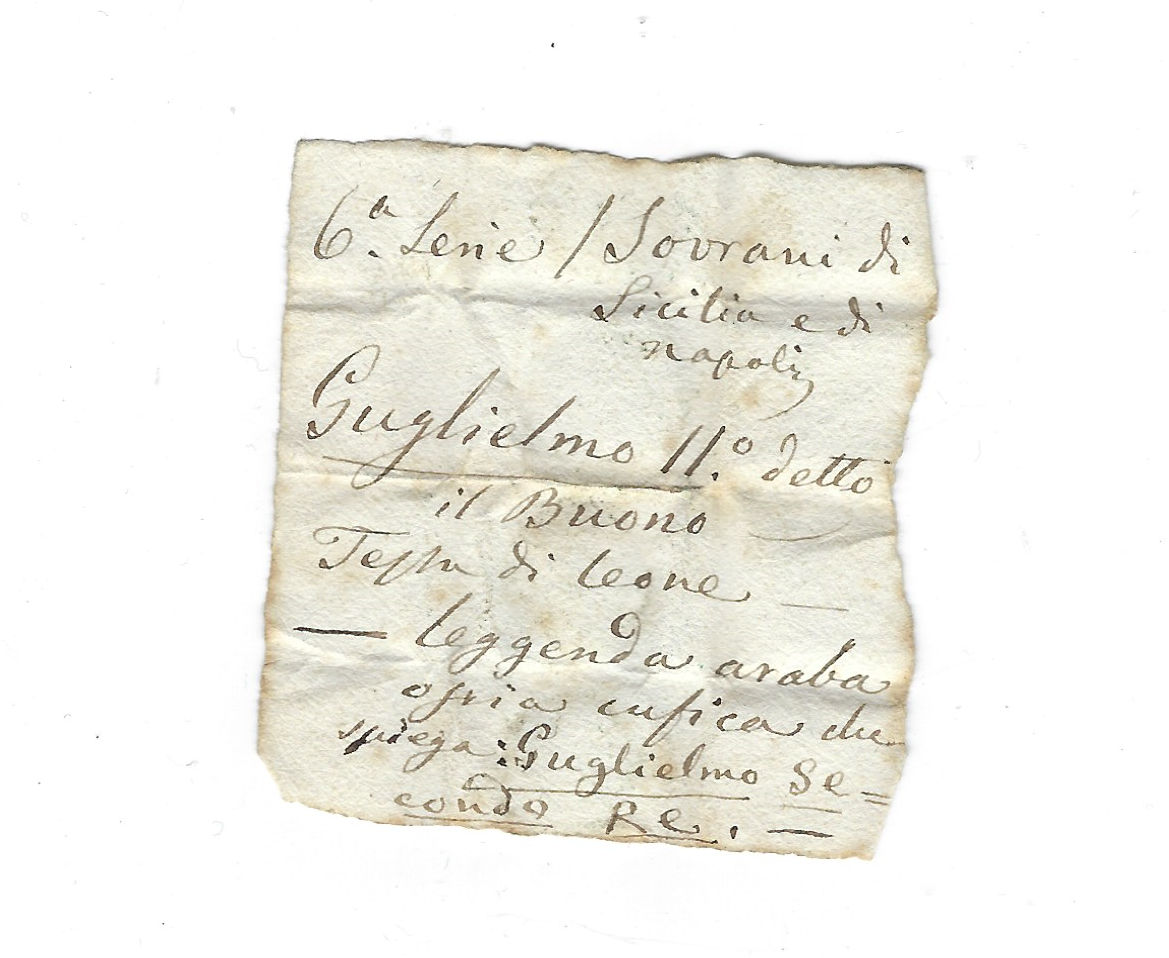 6.ª Serie / Sovrani di
Sicilia e di
Napoli
Guglielmo II.º detto
il Buono
Testa di leone —
— leggenda araba
ossia cufica che
spiega: Guglielmo Se=
condo Re. —